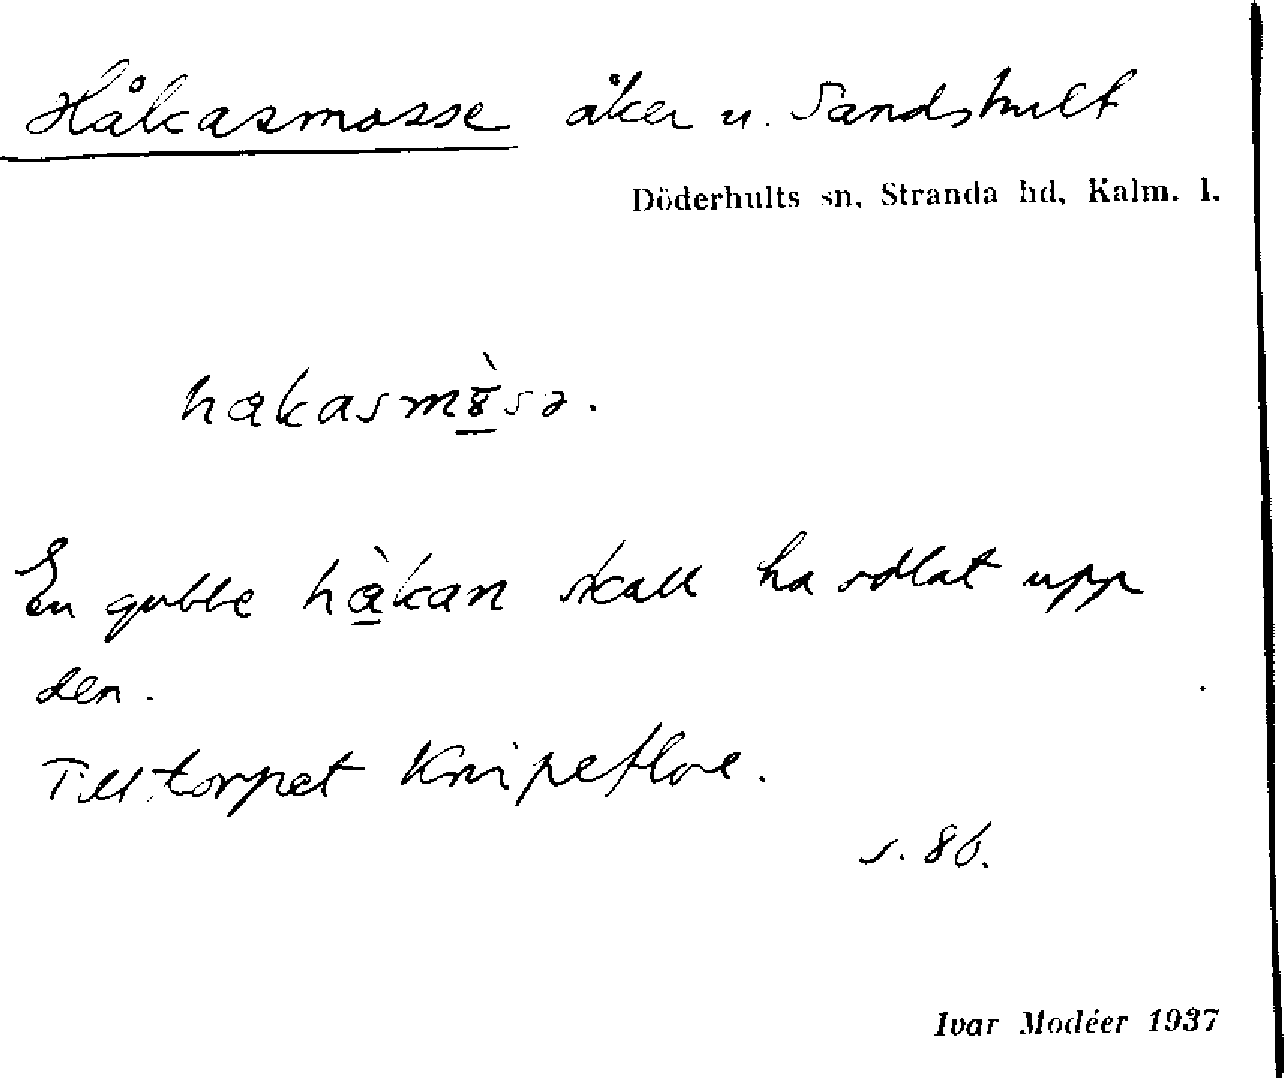 Håkasmosse åker u. Sandshult
Döderhults sn, Stranda hd, Kalm. l.
håkasm
En gubbe håkan skall ha odlat upp
den.
Till torpet Knipeflo
s. 86.
Ivar Modéer 1937